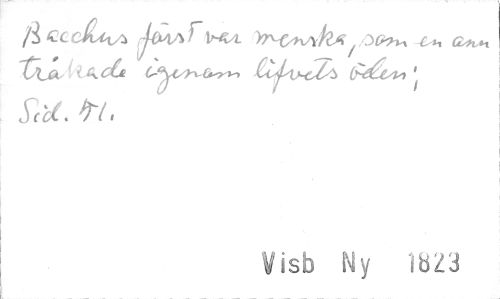 Bacchus först var menska, som en ann
tråkade igenom lifvets öden;
Sid. 51.
Visb Ny 1823